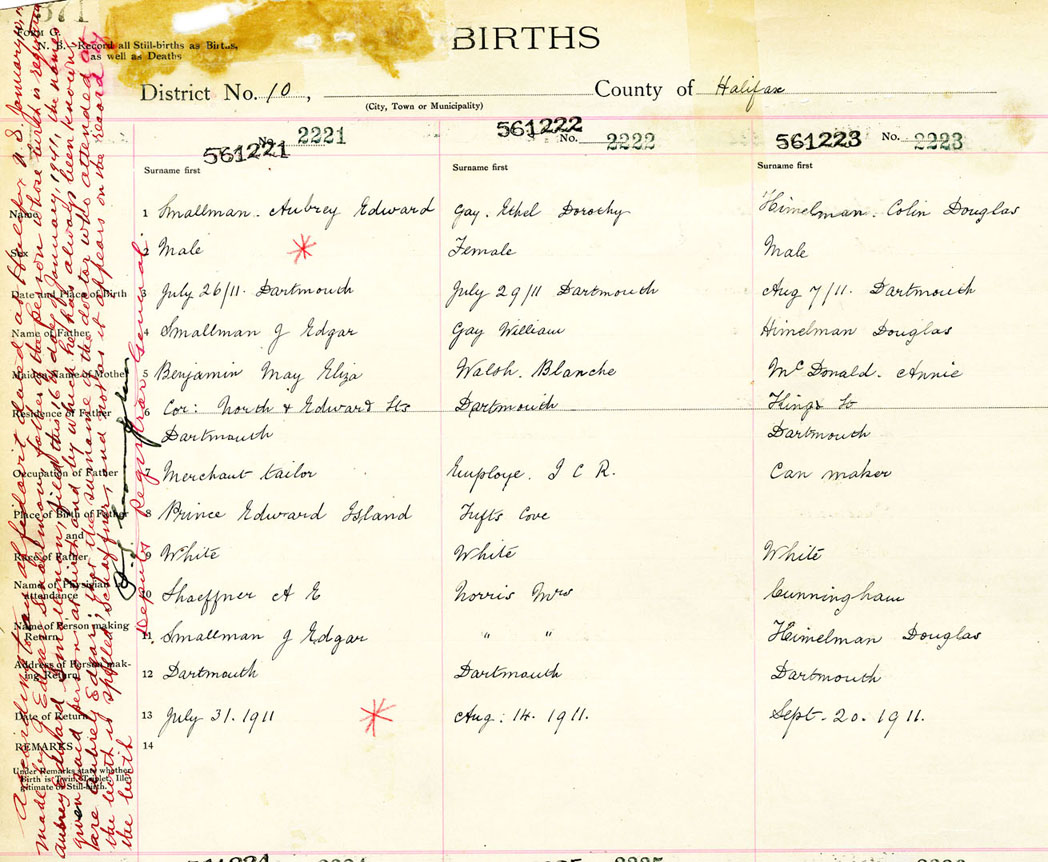 371
FORM C.
N. B.—Record all Still-births as Births,
as well as Deaths
BIRTHS
District No. 10,
County of Halifax
(City, Town or Municipality)
No. 2221
561221
561222
No. 2222
561223 No. 2223
Surname first
Surname first
Surname first
Name 1 Smallman. Aubrey Edward Gay. Ethel Dorothy Himelman. Colin Douglas
Sex 2 Male Female Male
Date and Place of Birth 3 July 26/11. Dartmouth July 29/11 Dartmouth Aug 7/11. Dartmouth
Name of Father 4 Smallman J Edgar Gay William Himelman Douglas
Maiden Name of Mother 5 Benjamin May Eliza Walsh. Blanche McDonald. Annie
Residence of Father 6 Cor: North & Edward Sts Dartmouth Kings St
Dartmouth Dartmouth
Occupation of Father 7 Merchant tailor Employe. I C R. Can maker
Place of Birth of Father 8 Prince Edward Island Tufts Cove
and
Race of Father 9 White White White
Name of Physician in
attendance 10 Shaeffner A E Norris Mrs Cunningham
Name of Person making
Return 11. Smallman J Edgar " " Himelman Douglas
Address of Person mak-
ing Return 12 Dartmouth Dartmouth Dartmouth
Date of Return 13 July 31. 1911 Aug: 14. 1911. Sept. 20. 1911.
REMARKS 14
Under Remarks state whether
Birth is Twin, Triplet, Ille-
gitimate or Still-birth.
According to an affidavit dated at Halifax, N. S. January
made by J Edgar Smallman, father of the person whose birth is registered
Aubrey Edward Smallman, filed this 16th day of January, 1941, the names
given said person at birth and by which he has always been known
are Aubrey Edgar; that the surname of the doctor who attended at
the birth is spelled Schaffner, and not as it appears on the record of
the birth
Deputy Registrar General
2225